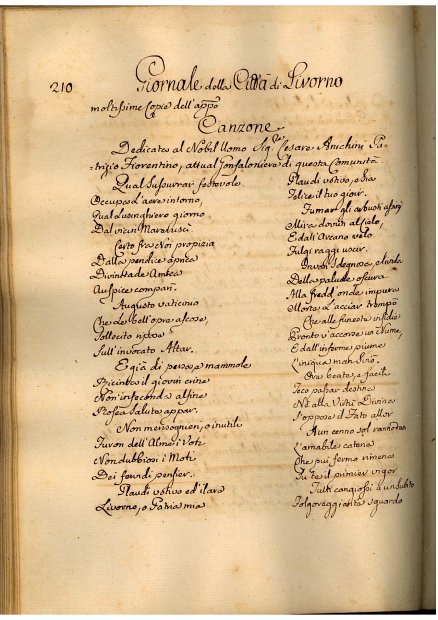 210
Giornale della Città di Livorno
moltissime Copie dell'app.o
Canzone
Dedicata al Nobil Uomo Sig.re Cesare Anichinj Pa-
trizio Fiorentino, attual Gonfaloniere di questa Comunità
Qual Sussurrar festevole
D'aere intorno,
Qual lusinghiero giorno
Dal vicin Mar
Certo fra Noi propizia
Dalla pendice aprica
Divinità de Amica
Auspice compari.
Augusto vaticinio
Che le bell'opre ascose,
Sollecito
Sull'invocato Altar.
E già di persa, e mammole
Ricinto il giovin crine
Non infeconda alfine
Salute appar.
Non mensogneri, o inutili
Furon dell'Alme i Voti
Non dubbiosi i Moti
Dei fervidi pensier.
Plaudi votivo ed ilare
Livorno, o Patria mia
Plaudi votivo, e sia
Felice il tuo gioir.
Fumar gli arbusti
Mira dovuti al Cielo,
E dall'Arcano velo
Fulgi raggi uscir.
Sdegnosa, e livida
Della palude oscura
Alla fredd'onde impura
Morte
Che alle funeste insidie
Pronto v'accorse un Nume,
E dall'inferme piume
L'iniqua
Ora beato, e facil
Teco destin
Nè alla Virtù Divina
S'oppose il Fato allor
A un cenno sol
L'amabile catena
Che più fermo rimena
In te il primier vigor
Tutti cangiossi
Folgoreggiante sguardo